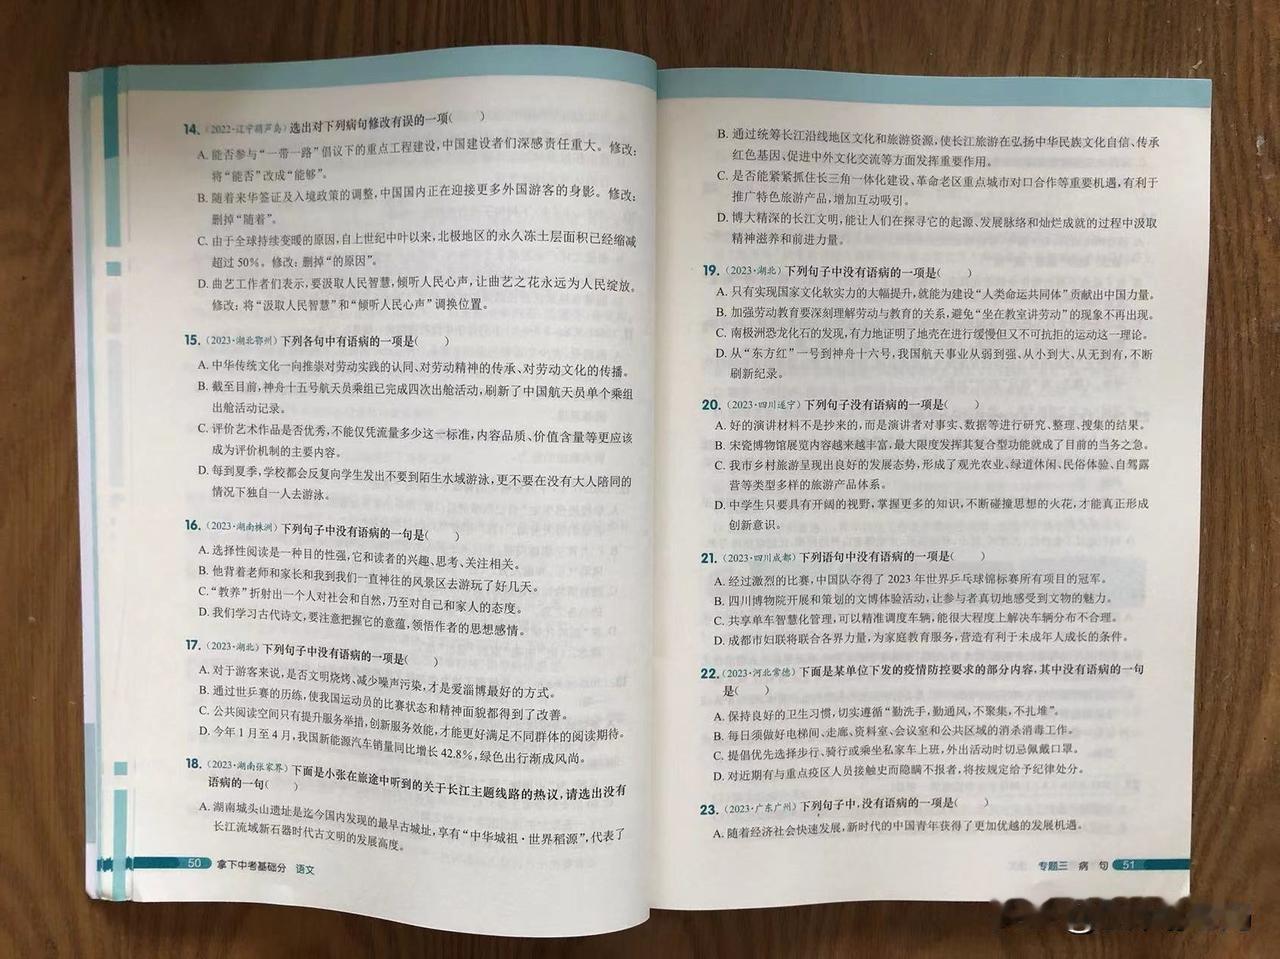 14.（2022·辽宁葫芦岛）选出对下列病句修改有误的一项(　　)
A. 能否参与“一带一路”倡议下的重点工程建设,中国建设者们深感责任重大。修改:
将“能否”改成“能够”。
B. 随着来华签证及入境政策的调整,中国国内正在迎接更多外国游客的身影。修改:
删掉“随着”。
C. 由于全球持续变暖的原因,自上世纪中叶以来,北极地区的永久冻土层面积已经缩减
超过50%。修改:删掉“的原因”。
D. 曲艺工作者们表示,要汲取人民智慧,倾听人民心声,让曲艺之花永远为人民绽放。
修改:将“汲取人民智慧”和“倾听人民心声”调换位置。
15.（2023·湖北鄂州）下列各句中有语病的一项是(　　)
A. 中华传统文化一向推崇对劳动实践的认同、对劳动精神的传承、对劳动文化的传播。
B. 截至目前,神舟十五号航天员乘组已完成四次出舱活动,刷新了中国航天员单个乘组
出舱活动记录。
C. 评价艺术作品是否优秀,不能仅凭流量多少这一标准,内容品质、价值含量等更应该
成为评价机制的主要内容。
D. 每到夏季,学校都会反复向学生发出不要到陌生水域游泳,更不要在没有大人陪同的
情况下独自一人去游泳。
16.（2023·湖南株洲）下列句子中没有语病的一句是(　　)
A. 选择性阅读是一种目的性强,它和读者的兴趣、思考、关注相关。
B. 他背着老师和家长和我到我们一直神往的风景区去游玩了好几天。
C. “教养”折射出一个人对社会和自然,乃至对自己和家人的态度。
D. 我们学习古代诗文,要注意把握它的意蕴,领悟作者的思想感情。
17.（2023·湖北）下列句子中没有语病的一项是(　　)
A. 对于游客来说,是否文明烧烤、减少噪声污染,才是爱淄博最好的方式。
B. 通过世乒赛的历练,使我国运动员的比赛状态和精神面貌都得到了改善。
C. 公共阅读空间只有提升服务举措,创新服务效能,才能更好满足不同群体的阅读期待。
D. 今年1月至4月,我国新能源汽车销量同比增长42.8%,绿色出行渐成风尚。
18.（2023·湖南张家界）下面是小张在旅途中听到的关于长江主题线路的热议,请选出没有
语病的一句(　　)
A. 湖南城头山遗址是迄今国内发现的最早古城址,享有“中华城祖·世界稻源”,代表了
长江流域新石器时代古文明的发展高度。
50 拿下中考基础分 语文
B. 通过统筹长江沿线地区文化和旅游资源,使长江旅游在弘扬中华民族文化自信、传承
红色基因、促进中外文化交流等方面发挥重要作用。
C. 是否能紧紧抓住长三角一体化建设、革命老区重点城市对口合作等重要机遇,有利于
推广特色旅游产品,增加互动吸引。
D. 博大精深的长江文明,能让人们在探寻它的起源、发展脉络和灿烂成就的过程中汲取
精神滋养和前进力量。
19.（2023·湖北）下列句子中没有语病的一项是(　　)
A. 只有实现国家文化软实力的大幅提升,就能为建设“人类命运共同体”贡献出中国力量。
B. 加强劳动教育要深刻理解劳动与教育的关系,避免“坐在教室讲劳动”的现象不再出现。
C. 南极洲恐龙化石的发现,有力地证明了地壳在进行缓慢但又不可抗拒的运动这一理论。
D. 从“东方红”一号到神舟十六号,我国航天事业从弱到强、从小到大、从无到有,不断
刷新纪录。
20.（2023·四川遂宁）下列句子没有语病的一项是(　　)
A. 好的演讲材料不是抄来的,而是演讲者对事实、数据等进行研究、整理、搜集的结果。
B. 宋瓷博物馆展览内容越来越丰富,最大限度发挥其复合型功能就成了目前的当务之急。
C. 我市乡村旅游呈现出良好的发展态势,形成了观光农业、绿道休闲、民俗体验、自驾露
营等类型多样的旅游产品体系。
D. 中学生只要具有开阔的视野,掌握更多的知识,不断碰撞思想的火花,才能真正形成
创新意识。
21.（2023·四川成都）下列语句中没有语病的一项是(　　)
A. 经过激烈的比赛,中国队夺得了2023年世界乒乓球锦标赛所有项目的冠军。
B. 四川博物院开展和策划的文博体验活动,让参与者真切地感受到文物的魅力。
C. 共享单车智慧化管理,可以精准调度车辆,能很大程度上解决车辆分布不合理。
D. 成都市妇联将联合各界力量,为家庭教育服务,营造有利于未成年人成长的条件。
22.（2023·河北常德）下面是某单位下发的疫情防控要求的部分内容,其中没有语病的一句
是(　　)
A. 保持良好的卫生习惯,切实遵循“勤洗手,勤通风,不聚集,不扎堆”。
B. 每日须做好电梯间、走廊、资料室、会议室和公共区域的消杀消毒工作。
C. 提倡优先选择步行、骑行或乘坐私家车上班,外出活动时切忌佩戴口罩。
D. 对近期有与重点疫区人员接触史而隐瞒不报者,将按规定给予纪律处分。
23.（2023·广东广州）下列句子中,没有语病的一项是(　　)
A. 随着经济社会快速发展,新时代的中国青年获得了更加优越的发展机遇。
专题三 病 句 51